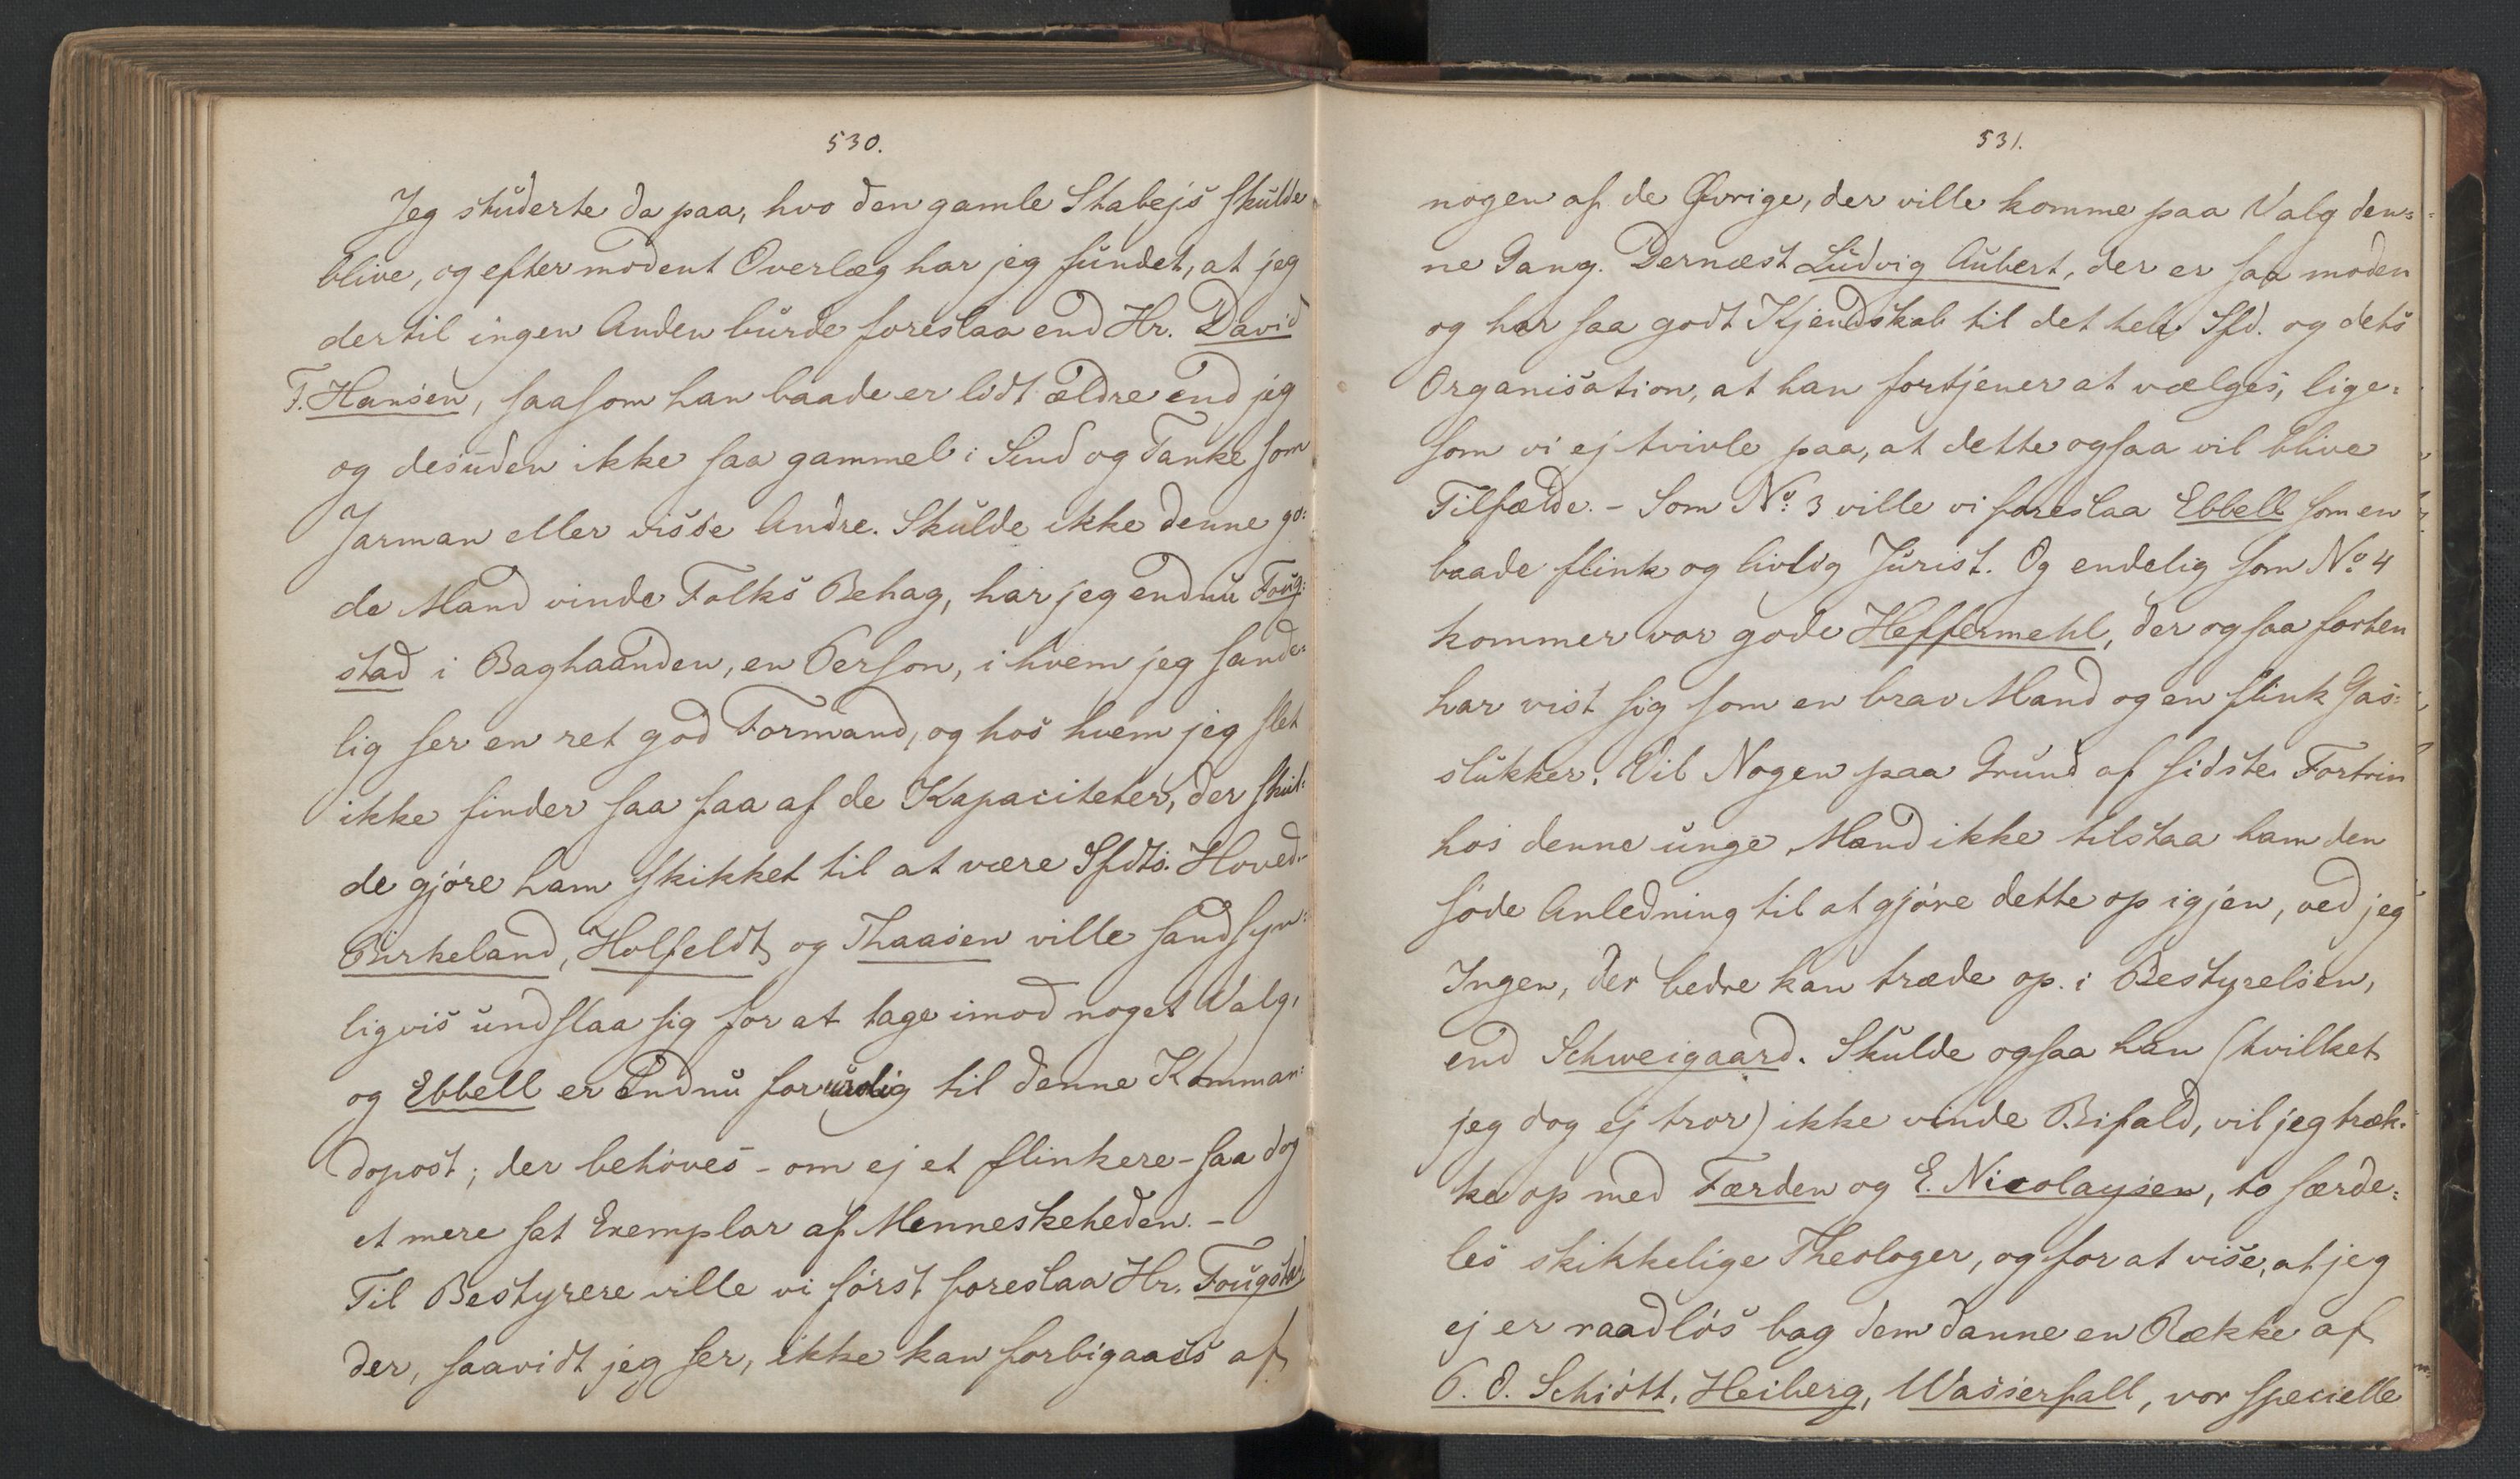 530.
Jeg studerte da paa, hvo den gamle Stabejs skulde
blive, og efter modent Overlæg har jeg fundet, at jeg
dertil ingen Anden burde foreslaa end Hr. David
F. Hansen, saasom han baade er lidt ældre end jeg
og desuden ikke saa gammel i Sind og Tanke som
Jarman eller visse Andre. Skulde ikke denne go-
de Mand vinde Folks Behag, har jeg endnu Foug-
stad i Baghaanden, en Person, i hvem jeg sande-
lig ser en ret god Formand, og hos hvem jeg slet
ikke finder saa faa af de Kapaciteter, der skul-
de gjøre ham skikket til at være Sfdts. Hoved.-
Birkeland, Holfeldt og Thaasen ville sandsyn-
ligvis undslaa sig for at tage imod noget Valg,
og Ebbell er endnu for til denne Komman-
dopost; der behøves - om ej et flinkere - saa dog
et mere sat Exemplar af Menneskeheden. -
Til Bestyrere ville vi først foreslaa Hr. Fougstad
der, saavidt jeg ser, ikke kan forbigaaes af
531.
nogen af de Øvrige, der ville komme paa Valg den-
ne Gang. Dernæst Ludvig Aubert, der er saa moden
og har saa godt Kjendskab til det hele Sfd. og dets
Organisation, at han fortjener at vælges, lige-
som vi ej tvivle paa, at dette ogsaa vil blive
Tilfælde. - Som No. 3 ville vi foreslaa Ebbell som en
baade flink og livlig Jurist. Og endelig som No. 4
kommer vor gode Heffermehl, der ogsaa forhen
har vist sig som en brav Mand og en flink Gas-
slukker. Vil Nogen paa Grund af sidste Fortrin
hos denne unge Mand ikke tilstaa ham den
søde Anledning til at gjøre dette op igjen, ved jeg
Ingen, der bedre kan træde op i Bestyrelsen,
end Schweigaard. Skulde ogsaa han (hvilket
jeg dog ej tror) ikke vinde Bifald, vil jeg træk-
ke op med Færden og E. Nicolaysen, to særde-
les skikkelige Theologer, og for at vise, at jeg
ej er raadløs bag dem danne en Række af
P. O. Schiøtt, Heiberg, Wasserfall, vor specielle